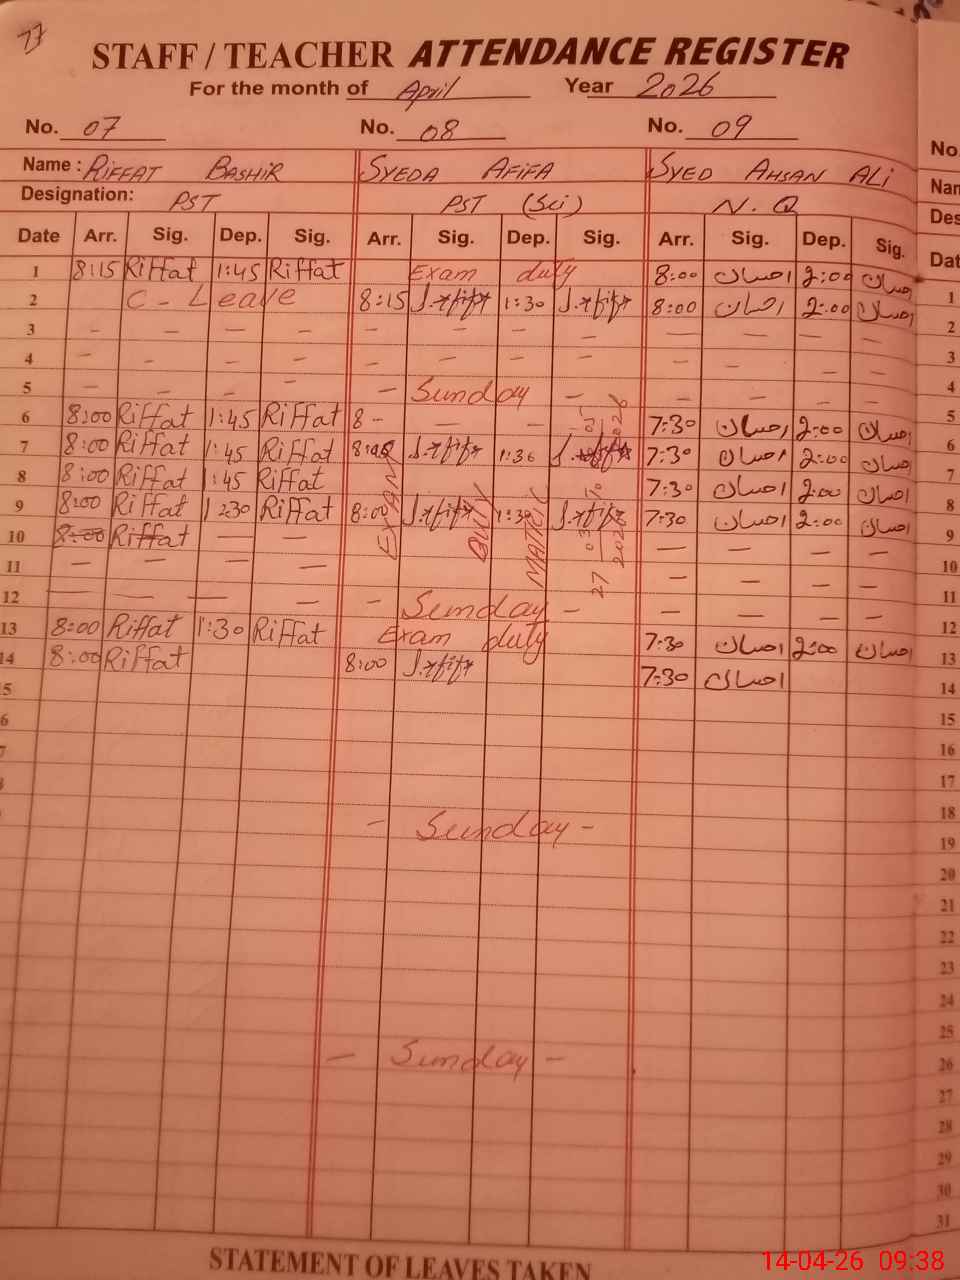 77
STAFF / TEACHER ATTENDANCE REGISTER
For the month of April Year 2026
No. 07 No. 08 No. 09 No.
Name : RIFFAT BASHIR SYEDA AFIFA SYED AHSAN ALI Nam
Designation: PST PST (Sci) N.Q Des
Date Arr. Sig. Dep. Sig. Arr. Sig. Dep. Sig. Arr. Sig. Dep. Sig. Dat
1 8:15 Riffat 1:45 Riffat Exam duty 8:00 احسان 2:00 احسان 1
2 C - Leave 8:15 1:30 8:00 احسان 2:00 احسان 2
3 – – – – – – – – – – – – 3
4 – – – – – – – – – – – – 4
5 – – – – Sunday – – – – – 5
6 8:00 Riffat 1:45 Riffat 8 - – – 7:30 احسان 2:00 احسان
7 8:00 Riffat 1:45 Riffat 1:30 7:30 احسان 2:00 احسان 7
8 8:00 Riffat 1:45 Riffat 7:30 احسان 2:00 احسان 8
9 8:00 Riffat 1:30 Riffat 8:00 1:30 7:30 احسان 2:00 احسان 9
EXAM DUTY MATRIC 27-03- 2026 To 2026
10 8:00 Riffat — — — — — — 10
11 – – – – – – – – 11
12 — — — – - Sunday - – – – – 12
13 8:00 Riffat 1:30 Riffat Exam duty 7:30 احسان 2:00 احسان 13
14 8:00 Riffat 8:00 7:30 احسان 14
5 15
6 16
7 17
18
- Sunday - 19
20
21
22
23
24
25
- Sunday - 26
27
28
29
30
31
STATEMENT OF LEAVES TAKEN
14-04-26 09:38